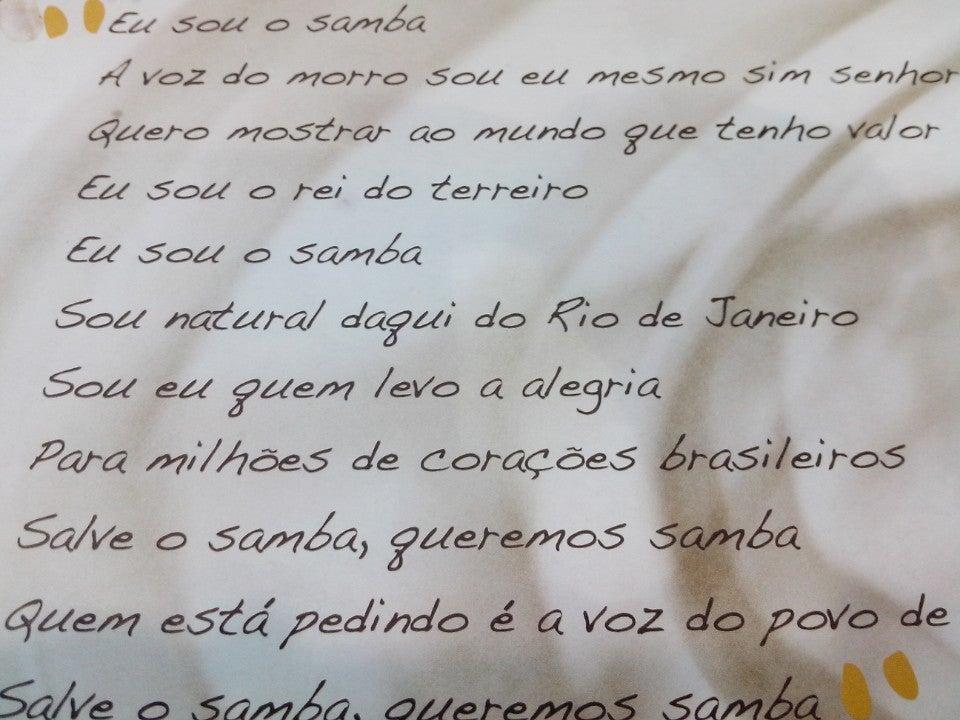 Eu sou o samba
A voz do morro sou eu mesmo sim senhor
Quero mostrar ao mundo que tenho valor
Eu sou o rei do terreiro
Eu sou o samba
Sou natural daqui do Rio de Janeiro
Sou eu quem levo a alegria
Para milhões de corações brasileiros
Salve o samba, queremos samba
Quem está pedindo é a voz do povo de
Salve o samba, queremos samba